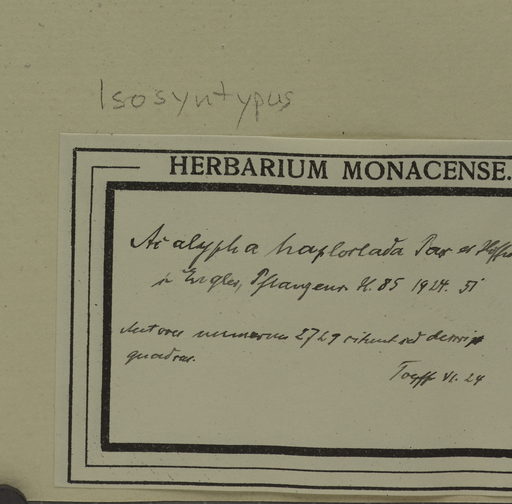 Isosyntypus
HERBARIUM MONACENSE.
Acalypha haploclada Pax et Hoffm
in Engler, Pflanzenr. H. 85 1924. 51
Autores numerum 2729 citunt sed descript
quadrar.
VI. 24